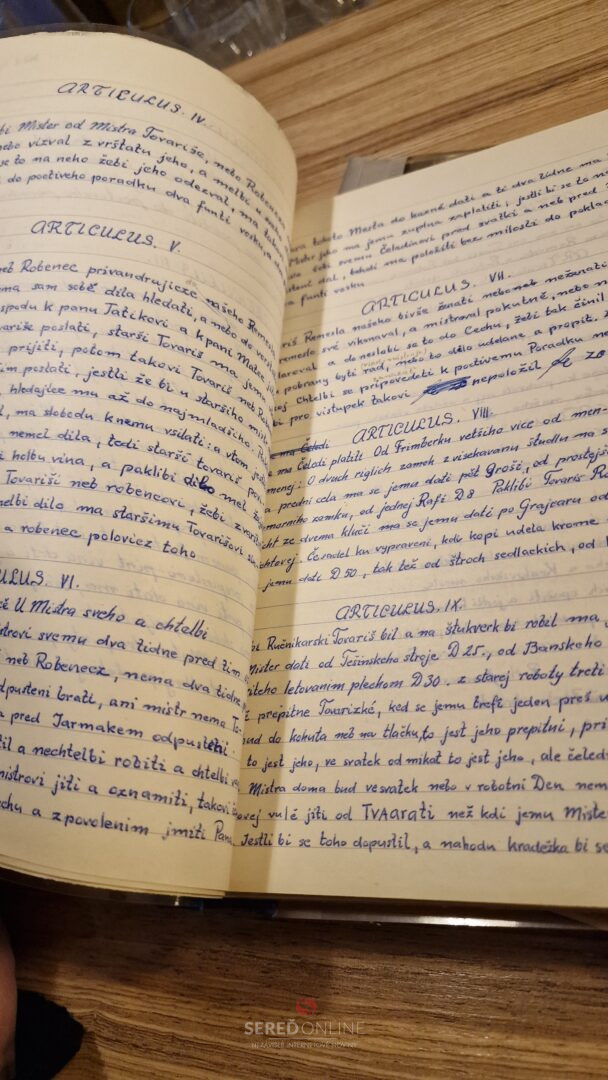 ARTICULUS. IV.
bi Mister od Mistra Tovariše, nebo Robenca
nebo vizval z vrštatu jeho, a melbi u sebe
se to na neho žebi jeho odezval, ma takovi
do poctiveho poradku dva funti vosku, a
ARTICULUS. V.
neb Robenec privandrujicze našeho Remesla
ma sam sobě dila hledati, a nebo do
spodu k panu Tatikovi a k pani Matce
variše poslati, starši Tovariš ma jemu
prijiti, potom takovi Tovariš neb Rob
im poslati, jestli že bi u staršiho mistra
hledajice mu až do najmladšiho.
l, ma slobodu k nemu vslati: a vtom jestli
nemel dila, tedi starši tovariš po
i holbu vina, a paklibi dilo mel že
Tovariši neb robencovi, žebi zvo
melbi dilo ma staršimu Tovarišovi
a robenec poloviez toho
ULUS. VI.
cě U Mistra sveho a chtelbi
istrovi svemu dva tidne pred tim
neb Robenecz, nema dva tidne
dpusteni brati, ani mistr nema To
a pred Jarmakem odpustěti
til a nechtelbi robiti a chtelbi
mistrovi jiti a oznamiti, takovi
chu a zpovolenim jmiti Pana
tohoto Mesta do kazně dati a te dva tidne ma
Mistr jeho ma jemu zuplna zaplatiti, jestli bi se to
žebi svemu Čeladinovi pred svatki a neb pred
dal, tehdi ma položiti bez milosti do poklad
a funti vosku
ARTICULUS. VII.
riš Remesla našeho bivše ženati neboneb neženati
remeslo své vikonaval, a mistroval pokutně, nebo
laroval a doneslobi se to do Cechu, žebi tak činil
pobrany byti rad, nebo to dělo udelane a propit.
Chtelbi se pripovedeti k poctivemu Poradku
bi pro vistupek takovi nepoložil
ARTICULUS. VIII.
ma Čeledi platiti. Od Frimberku vetšiho vice od men
menej: O dvuch riglich zamek z visekavanu študlu ma s
a predni cela ma se jemu dati pět Groši, od prostejš
marniho zamku, od jednej Rafi D 8 Paklibi Tovaris Ro
cht ze dvema kluči ma se jemu dati po Grajcaru od
ichtovej. Čeradel ku vypraveni, kdiz kopi udela krome
jemu dati D. 50, tak též od štroch sedlackich, od
ARTICULUS. IX.
bi Ručnikarski Tovariš bil a ma štukverk bi robil ma
Mister dati od Tešinskeho stroje D 25., od Banskeho
riteho letovanim plechom D 30. z starej roboty treti
prepitne Tovarizké, ked se jemu trefi jeden preš v
bud do kohuta neb na tlačku, to jest jeho prepitni, pri
to jest jeho, ve svatek od mikat to jest jeho, ale čeled
Mistra doma bud vesvatek nebo v robotni Den nem
ovej vulě jiti od TVAarati než kdi jemu Miste
Jestli bi se toho dopustil, a nahodu kradežka bi se
SEREĎ ONLINE